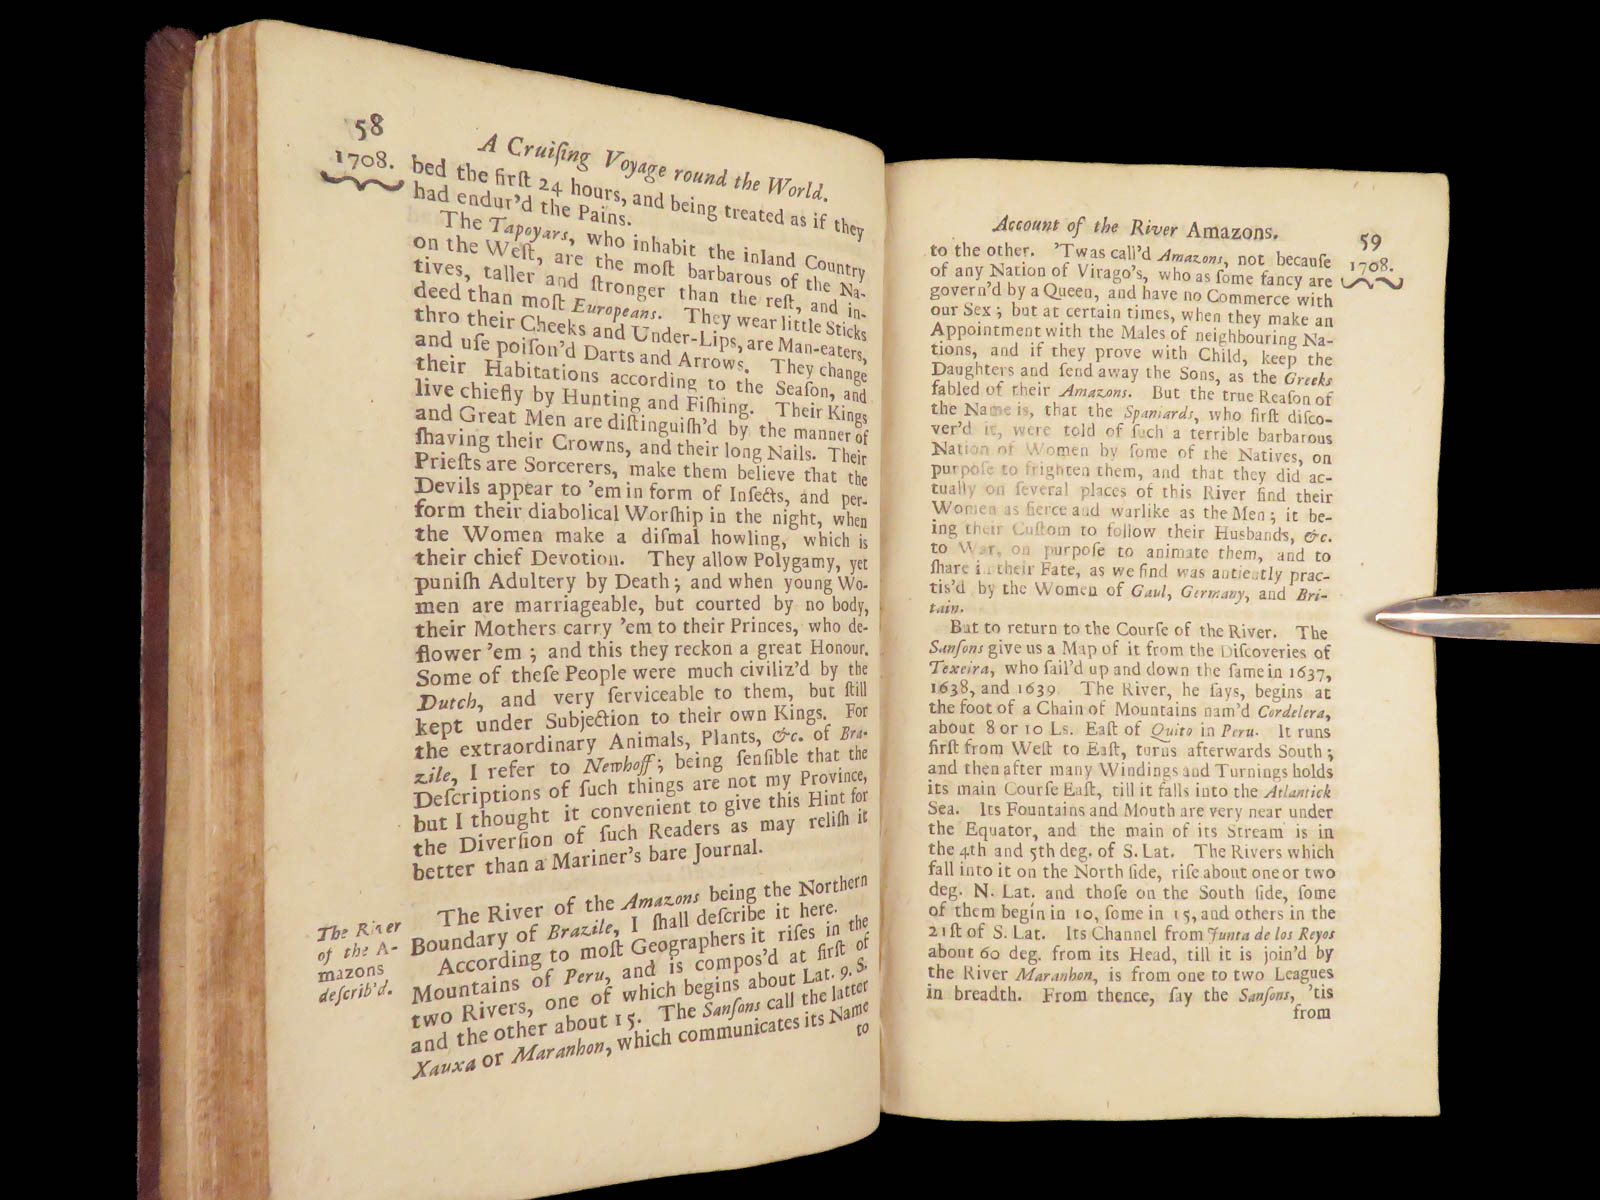 58
A Cruiſing Voyage round the World.
1708.
bed the firſt 24 hours, and being treated as if they
had endur'd the Pains.
The Tapoyars, who inhabit the inland Country
on the Weſt, are the moſt barbarous of the Na-
tives, taller and ſtronger than the reſt, and in-
deed than moſt Europeans. They wear little Sticks
thro their Cheeks and Under-Lips, are Man-eaters,
and uſe poiſon'd Darts and Arrows. They change
their Habitations according to the Seaſon, and
live chiefly by Hunting and Fiſhing. Their Kings
and Great Men are diſtinguiſh'd by the manner of
ſhaving their Crowns, and their long Nails. Their
Prieſts are Sorcerers, make them believe that the
Devils appear to 'em in form of Inſects, and per-
form their diabolical Worſhip in the night, when
the Women make a diſmal howling, which is
their chief Devotion. They allow Polygamy, yet
puniſh Adultery by Death; and when young Wo-
men are marriageable, but courted by no body,
their Mothers carry 'em to their Princes, who de-
flower 'em; and this they reckon a great Honour.
Some of theſe People were much civiliz'd by the
Dutch, and very ſerviceable to them, but ſtill
kept under Subjection to their own Kings. For
the extraordinary Animals, Plants, &c. of Bra-
zile, I refer to Newhoff; being ſenſible that the
Deſcriptions of ſuch things are not my Province,
but I thought it convenient to give this Hint for
the Diverſion of ſuch Readers as may reliſh it
better than a Mariner's bare Journal.
The River
of the A-
mazons
deſcrib'd.
The River of the Amazons being the Northern
Boundary of Brazile, I ſhall deſcribe it here.
According to moſt Geographers it riſes in the
Mountains of Peru, and is compos'd at firſt of
two Rivers, one of which begins about Lat. 9. S.
and the other about 15. The Sanſons call the latter
Xauxa or Maranhon, which communicates its Name
to
Account of the River Amazons.
59
1708.
to the other. 'Twas call'd Amazons, not becauſe
of any Nation of Virago's, who as ſome fancy are
govern'd by a Queen, and have no Commerce with
our Sex; but at certain times, when they make an
Appointment with the Males of neighbouring Na-
tions, and if they prove with Child, keep the
Daughters and ſend away the Sons, as the Greeks
fabled of their Amazons. But the true Reaſon of
the Name is, that the Spaniards, who firſt diſco-
ver'd it, were told of ſuch a terrible barbarous
Nation of Women by ſome of the Natives, on
purpoſe to frighten them, and that they did ac-
tually on ſeveral places of this River find their
Women as fierce and warlike as the Men; it be-
ing their Cuſtom to follow their Husbands, &c.
to War, on purpoſe to animate them, and to
ſhare in their Fate, as we find was antiently prac-
tis'd by the Women of Gaul, Germany, and Bri-
tain.
But to return to the Courſe of the River. The
Sanſons give us a Map of it from the Diſcoveries of
Texeira, who ſail'd up and down the ſame in 1637,
1638, and 1639. The River, he ſays, begins at
the foot of a Chain of Mountains nam'd Cordelera,
about 8 or 10 Ls. Eaſt of Quito in Peru. It runs
firſt from Weſt to Eaſt, turns afterwards South;
and then after many Windings and Turnings holds
its main Courſe Eaſt, till it falls into the Atlantick
Sea. Its Fountains and Mouth are very near under
the Equator, and the main of its Stream is in
the 4th and 5th deg. of S. Lat. The Rivers which
fall into it on the North ſide, riſe about one or two
deg. N. Lat. and thoſe on the South ſide, ſome
of them begin in 10, ſome in 15, and others in the
21ſt of S. Lat. Its Channel from Junta de los Reyos
about 60 deg. from its Head, till it is join'd by
the River Maranhon, is from one to two Leagues
in breadth. From thence, ſay the Sanſons, 'tis
from